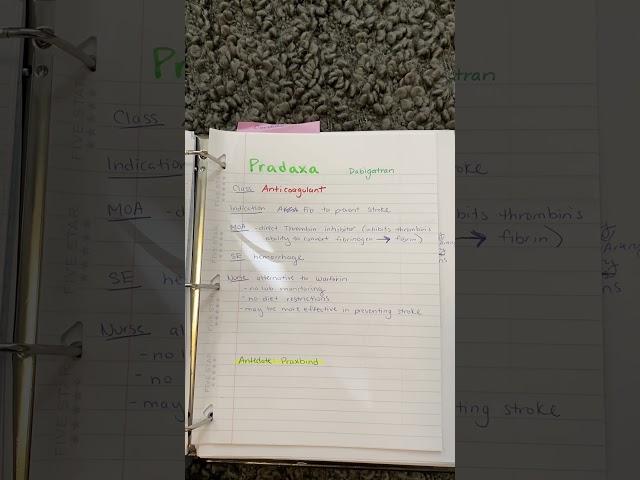 Pradaxa Dabigatran
Class Anticoagulant
Indication A Fib to prevent stroke
MOA -direct Thrombin inhibitor (inhibits thrombin's
ability to convert fibrinogen → fibrin)
SE hemorrhage
Nurse alternative to warfarin
-no lab monitoring
-no diet restrictions
-may be more effective in preventing stroke
Antidote Praxbind
FIVE STAR